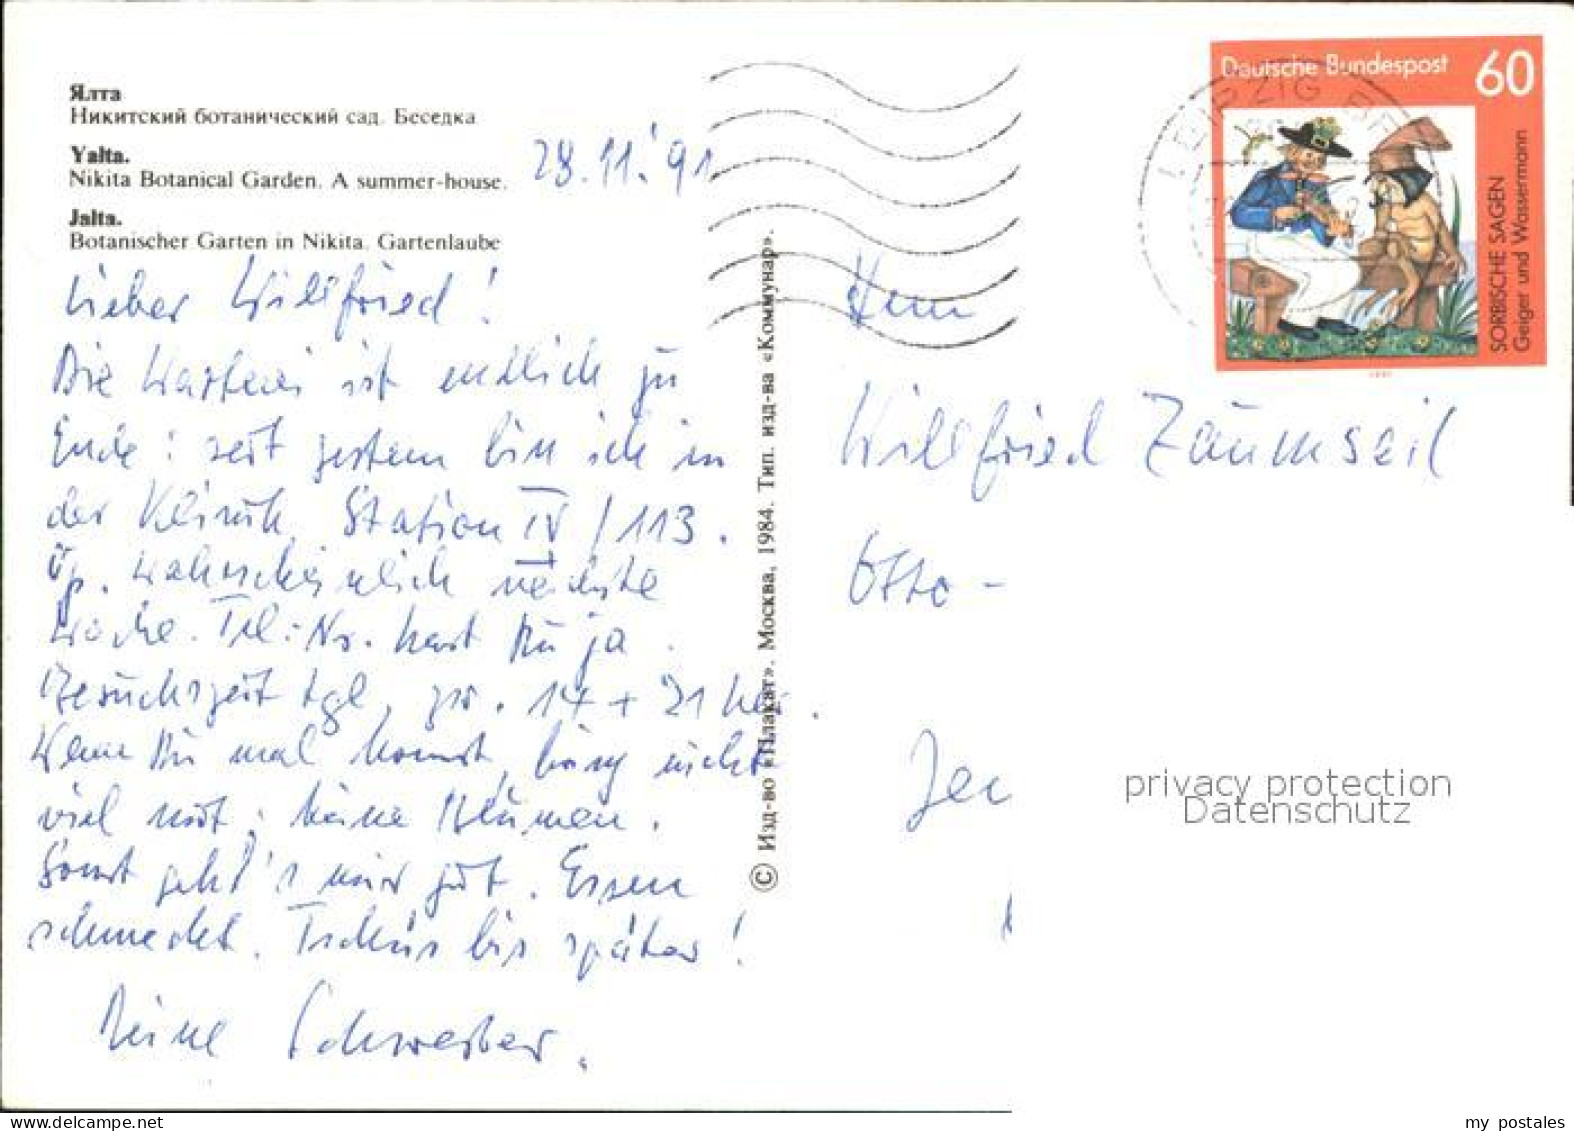 Ялта
Никитский ботанический сад. Беседка
Yalta.
Nikita Botanical Garden. A summer-house.
Jalta.
Botanischer Garten in Nikita. Gartenlaube
28.11.'91
Lieber Willfried!
Die Warterei ist endlich zu
Ende: seit gestern bin ich in
der Klinik, Station IV / 113.
Op. wahrscheinlich nächste
Woche. Tel.-Nr. hast Du ja.
Besuchszeit tgl. zw. 14 + 21
Wenn Du mal kommst, bring nicht
viel mit; keine Blumen.
Sonst geht's mir gut. Essen
schmeckt. Tschüs bis später!
Deine Schwester.
© Изд-во «Плакат». Москва, 1984. Тип. изд-ва «Коммунар».
Deutsche Bundespost 60
SORBISCHE SAGEN
Geiger und Wassermann
1991
LEIPZIG
Herrn
Willfried Zäumseil
Otto-
Jen
privacy protection
Datenschutz
www.delcampe.net
my_postales